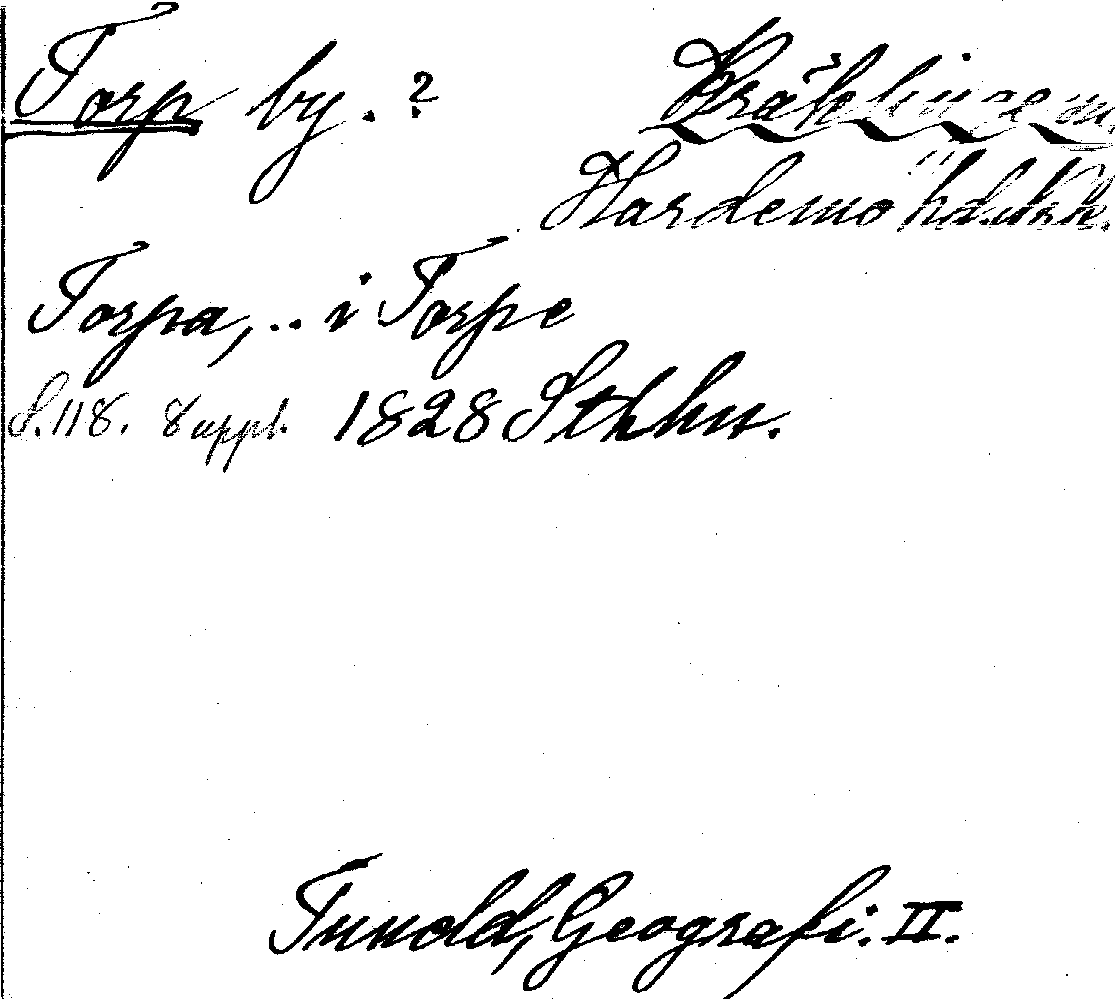 Torp by. ? Kräklinge sn.
Hardemo hd.
Torpa, .. i Torpe
S. 118. 8 uppl. 1828 Sthlm.
Tunold, Geografi. II.